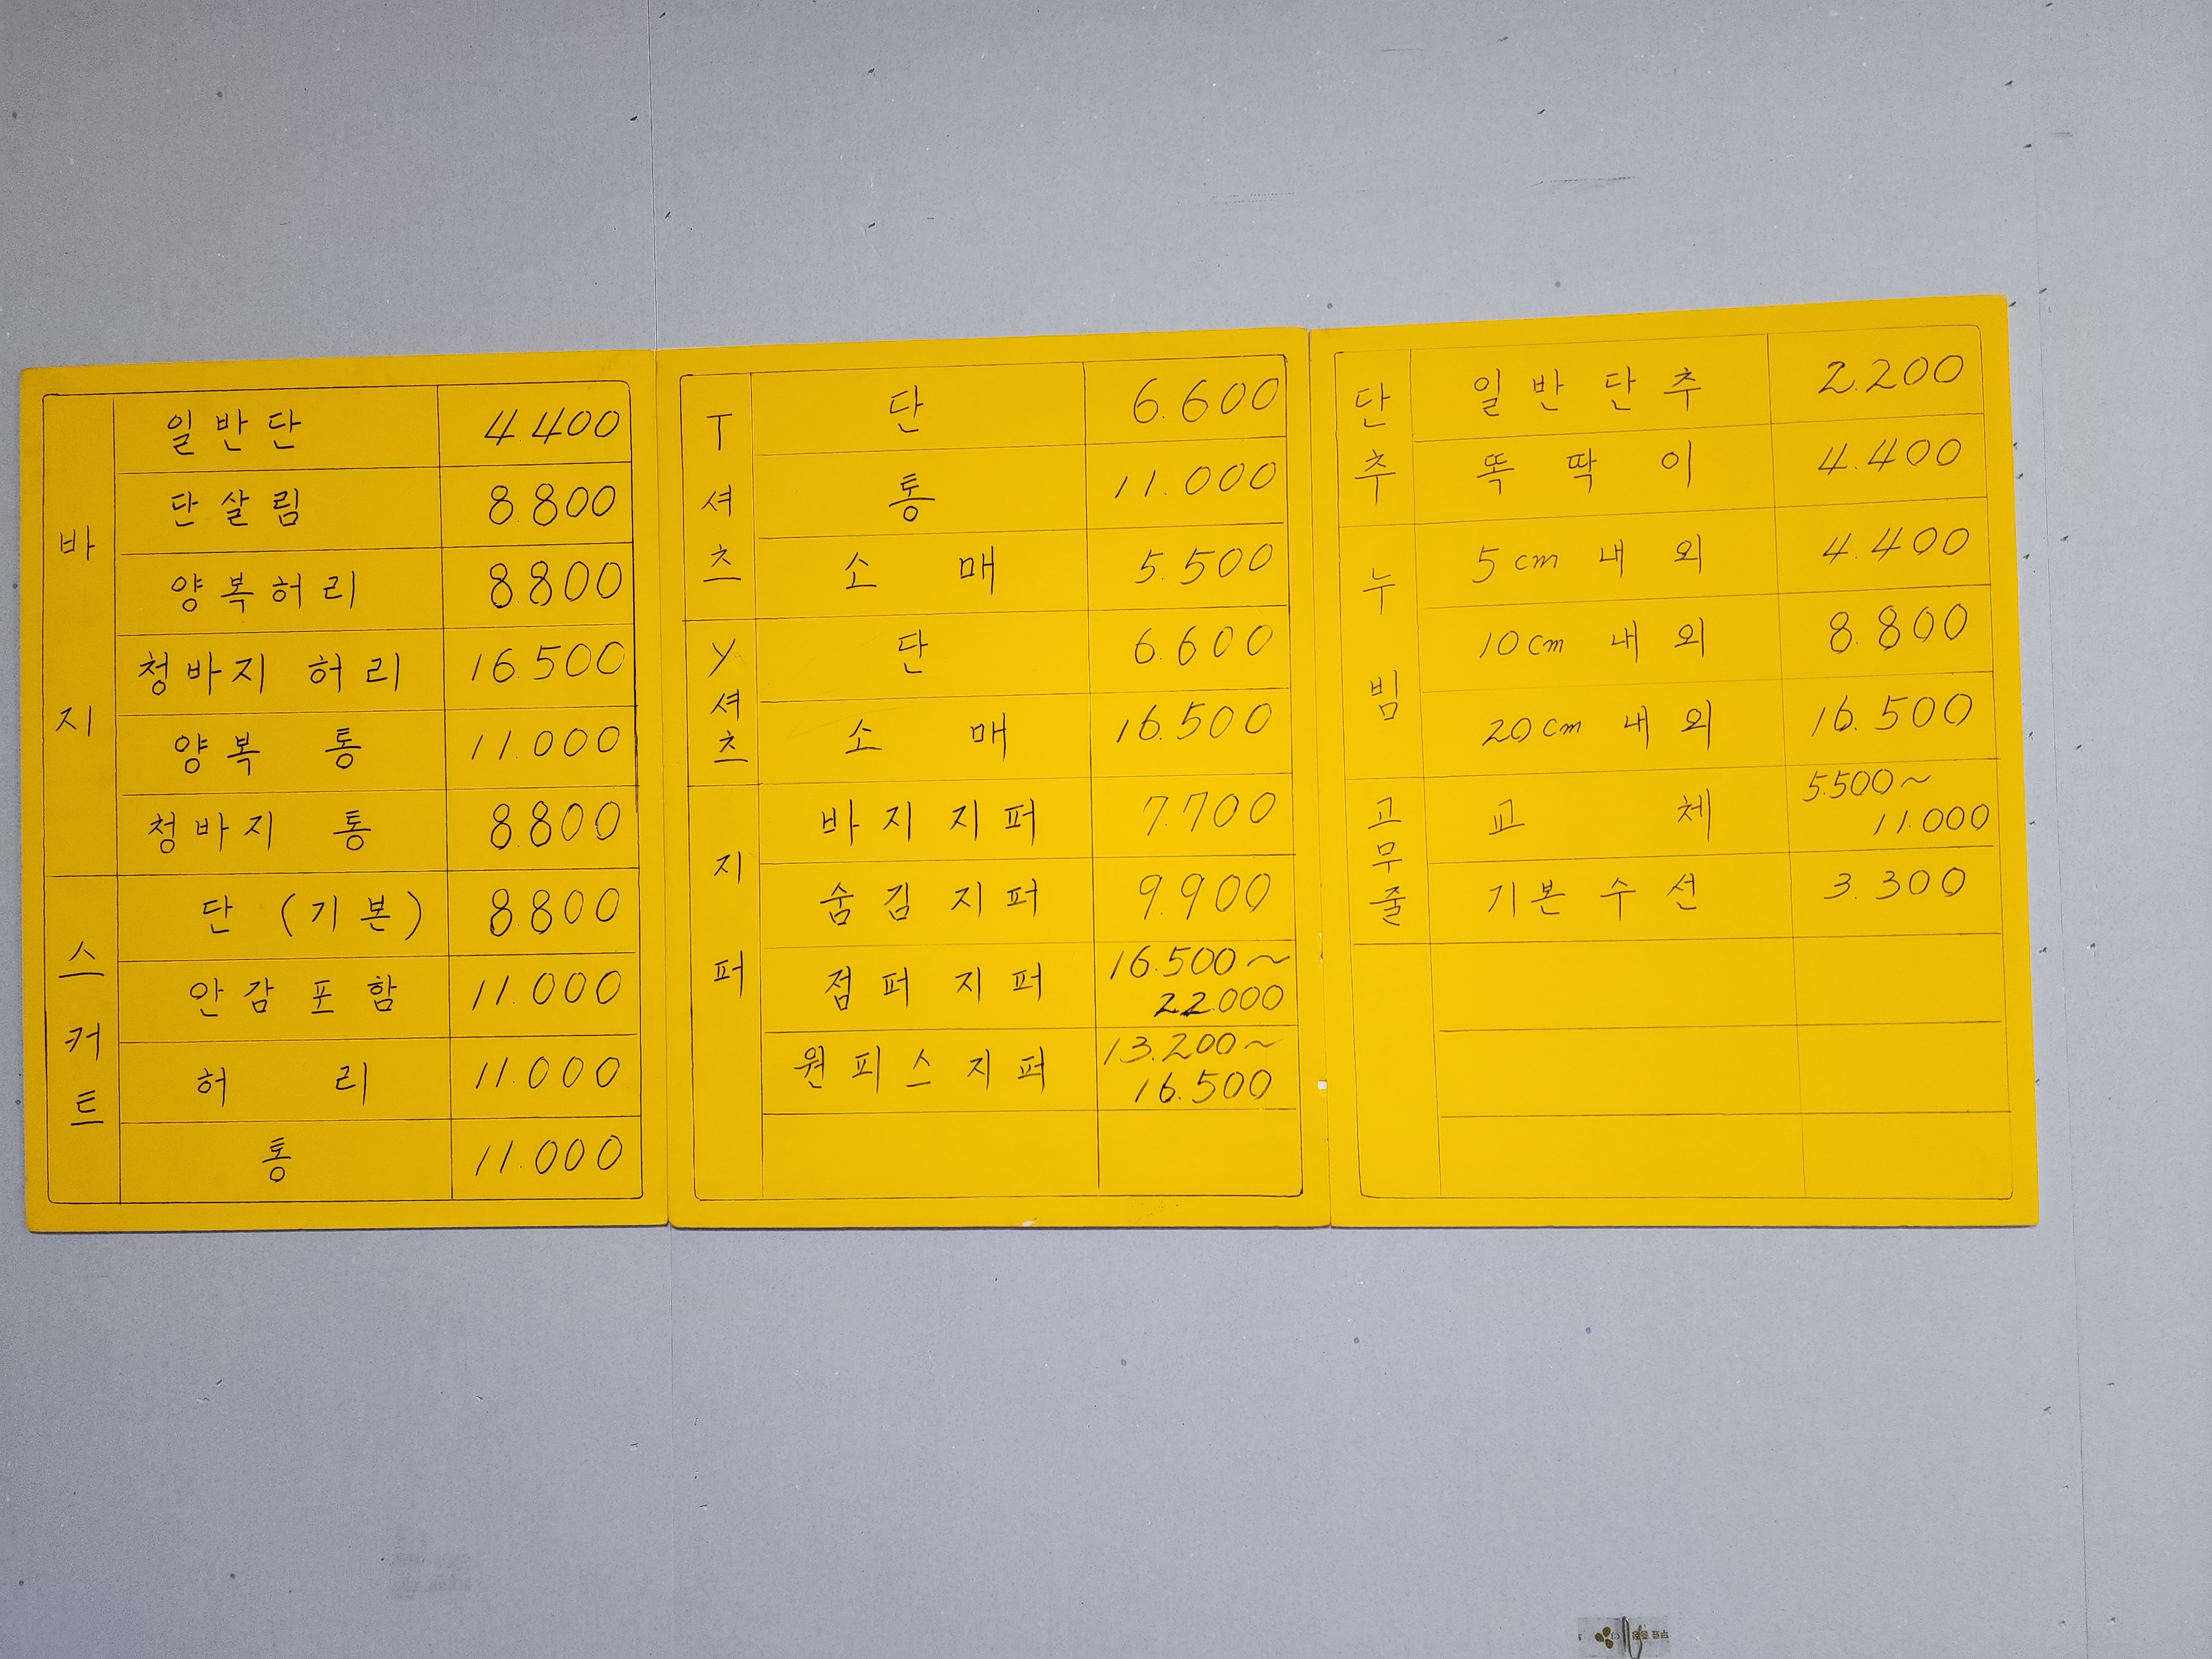 바지
일반단 4.400
단살림 8.800
양복허리 8.800
청바지 허리 16.500
양복 통 11.000
청바지 통 8.800
스커트
단 (기본) 8.800
안감포함 11.000
허리 11.000
통 11.000
T셔츠
단 6.600
통 11.000
소매 5.500
Y셔츠
단 6.600
소매 16.500
지퍼
바지지퍼 7.700
숨김지퍼 9.900
점퍼지퍼 16.500~
22.000
원피스지퍼 13.200~
16.500
단추
일반단추 2.200
똑딱이 4.400
누빔
5cm 내외 4.400
10cm 내외 8.800
20cm 내외 16.500
고무줄
교체 5.500~
11.000
기본수선 3.300